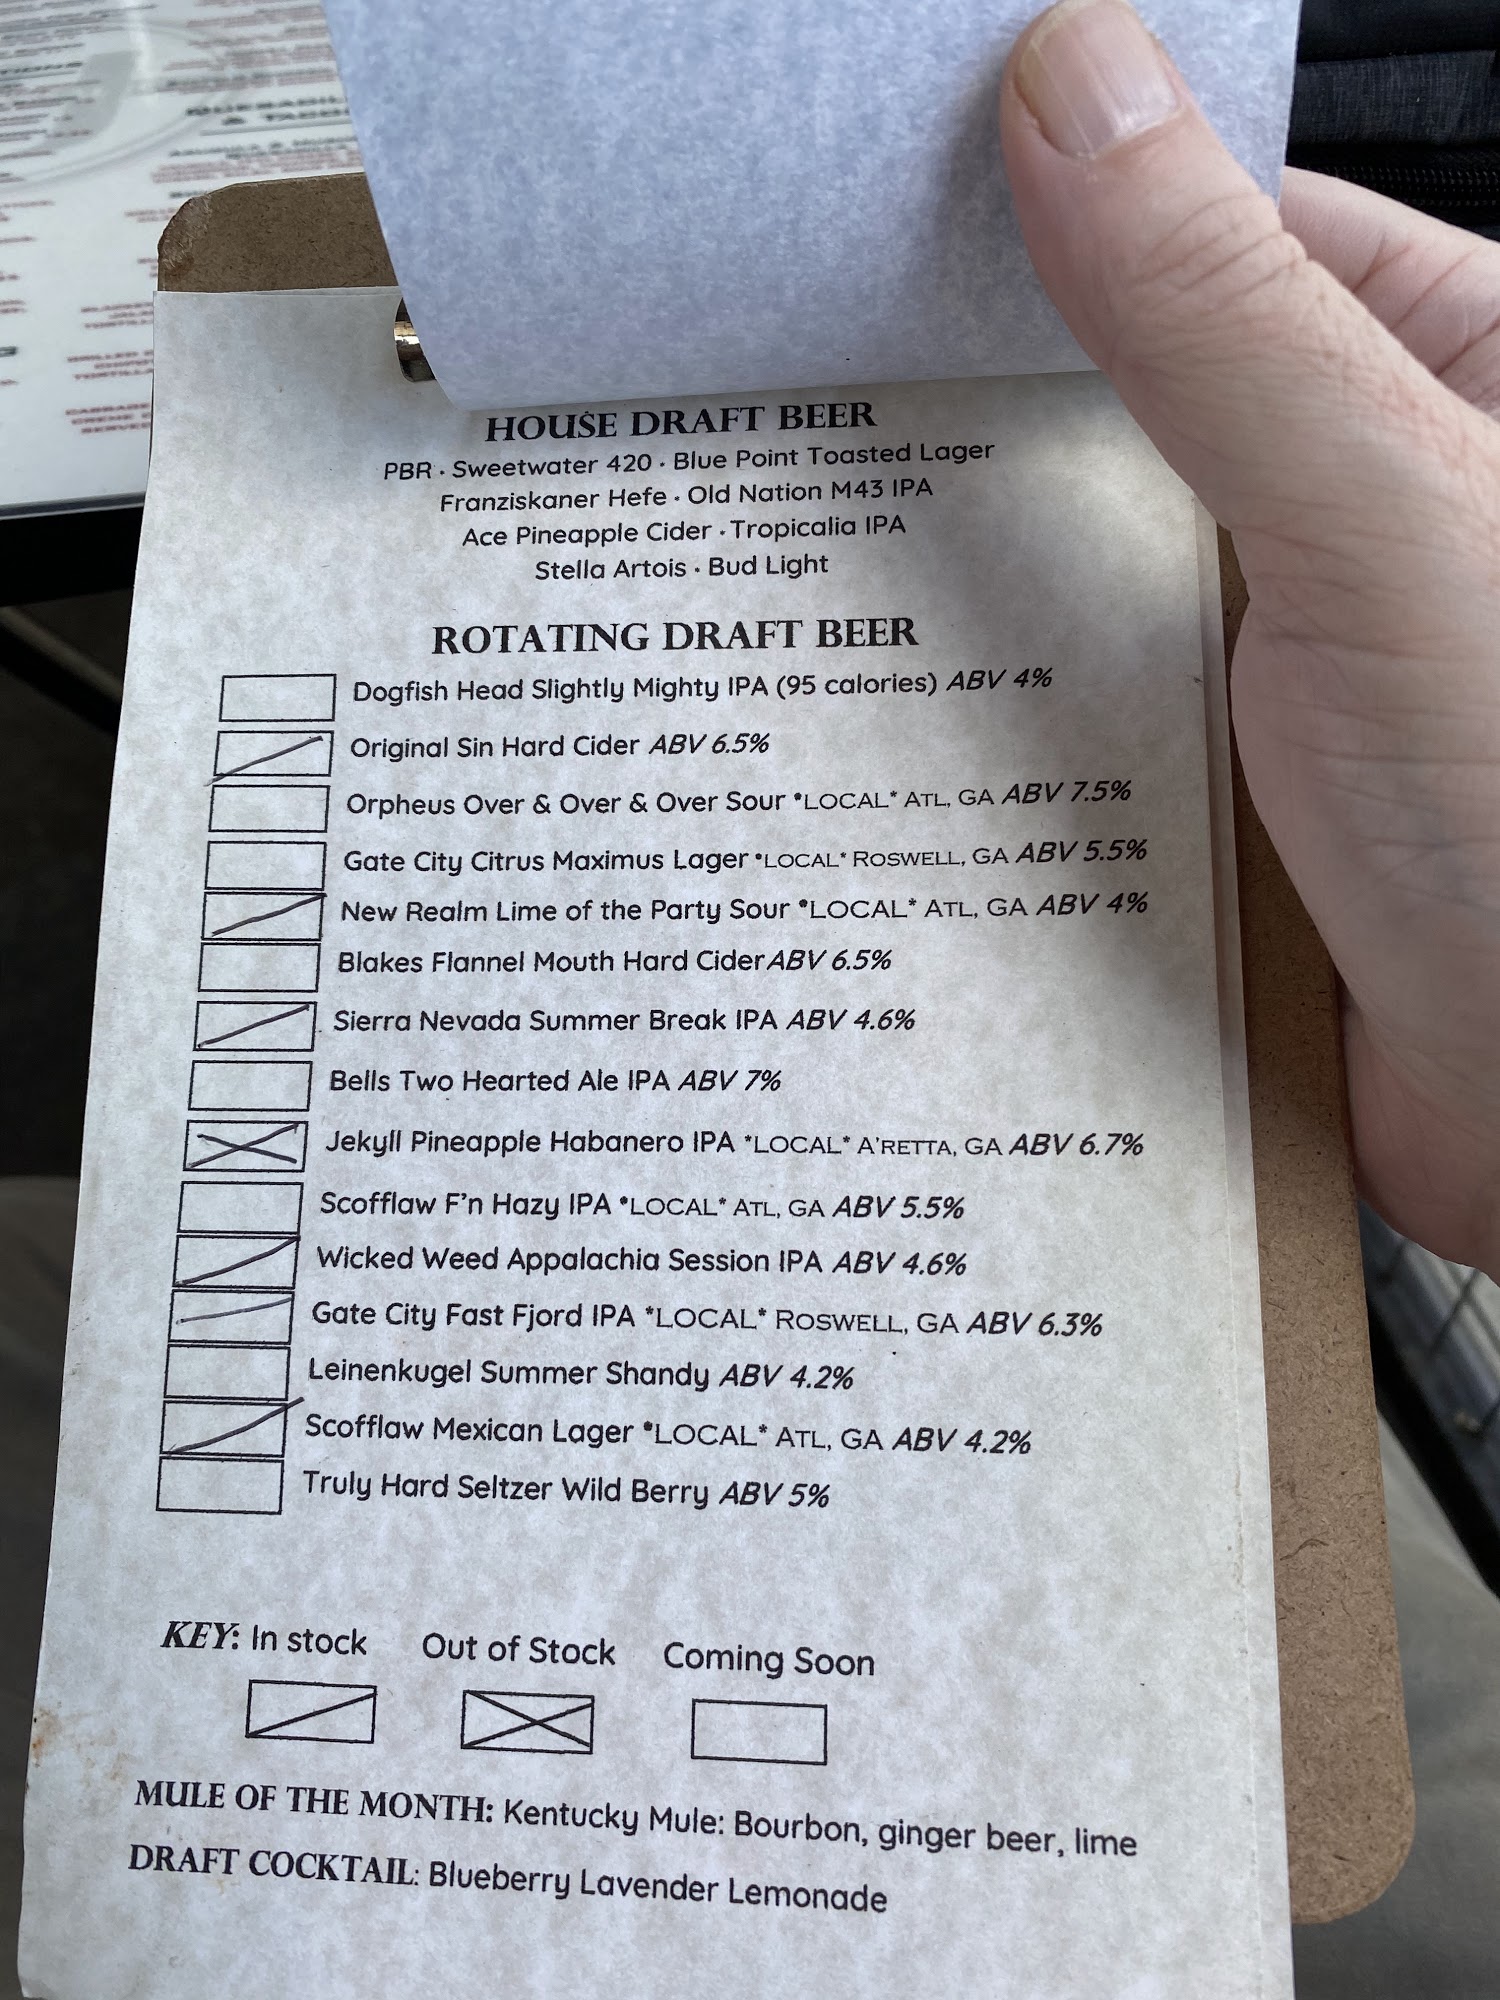 QUESADILL
& TACO
HOUSE DRAFT BEER
PBR · Sweetwater 420 · Blue Point Toasted Lager
Franziskaner Hefe · Old Nation M43 IPA
Ace Pineapple Cider · Tropicalia IPA
Stella Artois · Bud Light
ROTATING DRAFT BEER
Dogfish Head Slightly Mighty IPA (95 calories) ABV 4%
Original Sin Hard Cider ABV 6.5%
Orpheus Over & Over & Over Sour *LOCAL* ATL, GA ABV 7.5%
Gate City Citrus Maximus Lager *LOCAL* ROSWELL, GA ABV 5.5%
New Realm Lime of the Party Sour *LOCAL* ATL, GA ABV 4%
Blakes Flannel Mouth Hard Cider ABV 6.5%
Sierra Nevada Summer Break IPA ABV 4.6%
Bells Two Hearted Ale IPA ABV 7%
Jekyll Pineapple Habanero IPA *LOCAL* A'RETTA, GA ABV 6.7%
Scofflaw F'n Hazy IPA *LOCAL* ATL, GA ABV 5.5%
Wicked Weed Appalachia Session IPA ABV 4.6%
Gate City Fast Fjord IPA *LOCAL* ROSWELL, GA ABV 6.3%
Leinenkugel Summer Shandy ABV 4.2%
Scofflaw Mexican Lager *LOCAL* ATL, GA ABV 4.2%
Truly Hard Seltzer Wild Berry ABV 5%
KEY: In stock Out of Stock Coming Soon
MULE OF THE MONTH: Kentucky Mule: Bourbon, ginger beer, lime
DRAFT COCKTAIL: Blueberry Lavender Lemonade